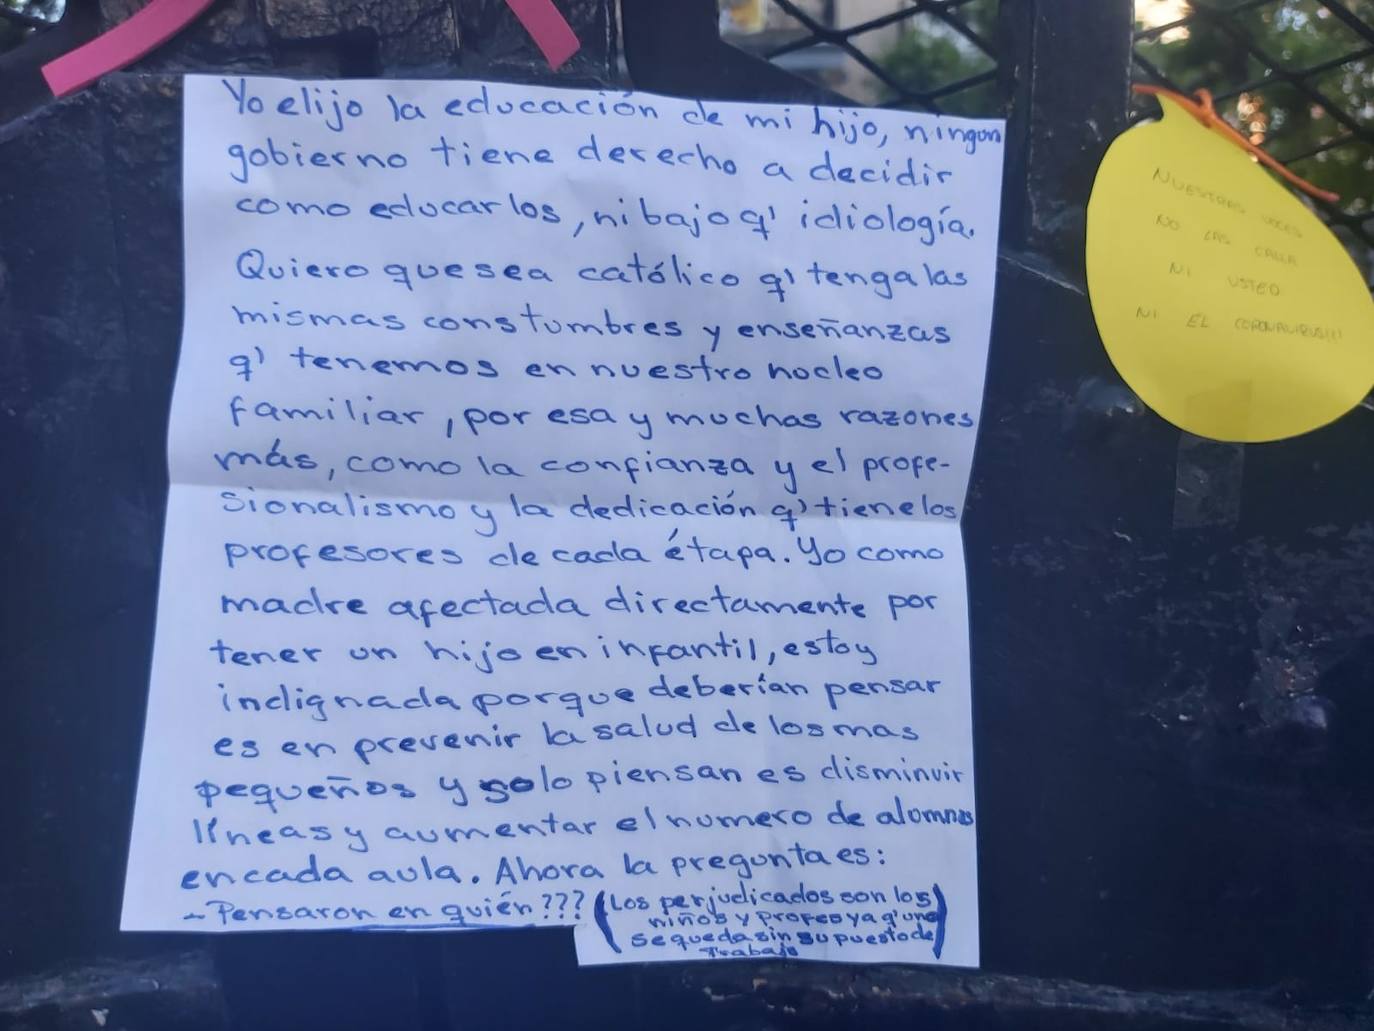 Yo elijo la educación de mi hijo, ningun
gobierno tiene derecho a decidir
como educarlos, ni bajo q' idiología.
Quiero que sea católico q' tenga las
mismas constumbres y enseñanzas
q' tenemos en nuestro nucleo
familiar, por esa y muchas razones
más, como la confianza y el profe-
sionalismo y la dedicación q' tiene los
profesores de cada étapa. Yo como
madre afectada directamente por
tener un hijo en infantil, estoy
indignada porque deberían pensar
es en prevenir la salud de los mas
pequeños y solo piensan es disminuir
líneas y aumentar el numero de alumnos
en cada aula. Ahora la pregunta es:
- Pensaron en quién???
(Los perjudicados son los
niños y profes ya q' uno
se queda sin su puesto de
trabajo)
NUESTRAS VOCES
NO LAS CALLA
NI USTED
NI EL CORONAVIRUS!!!